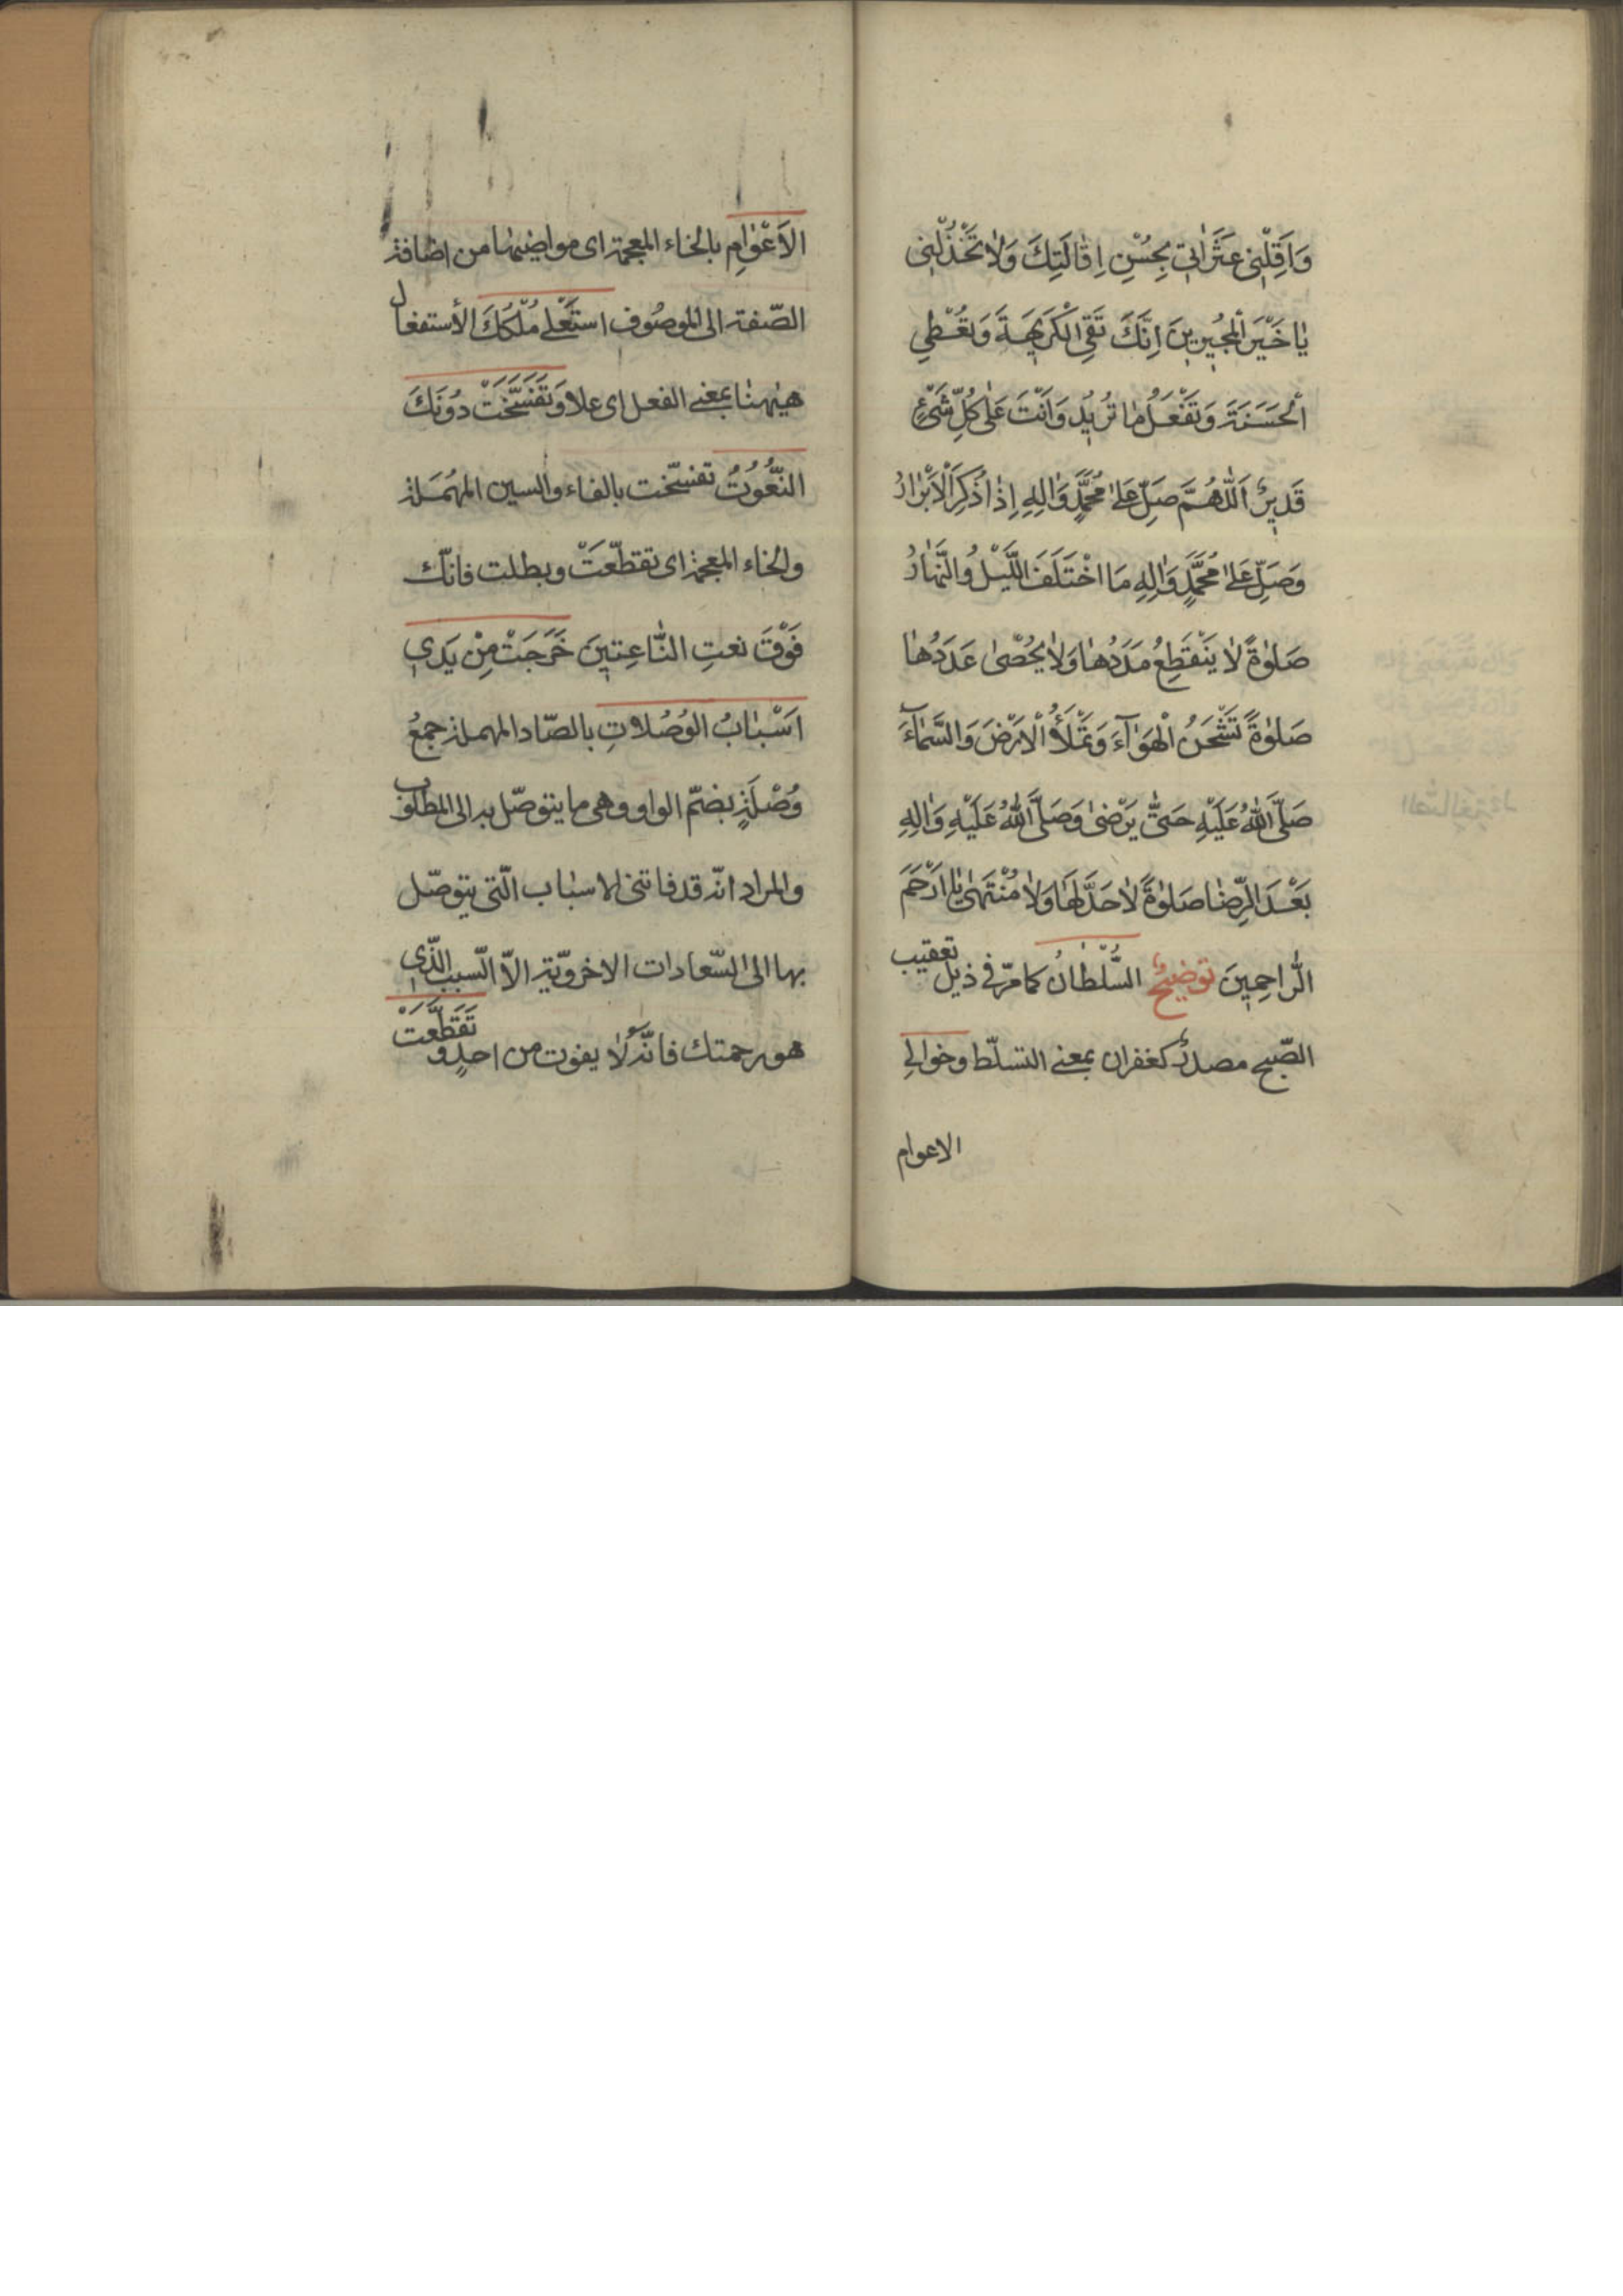 وَاَقِلْنِی عَثَرَاتِی بِحُسْنِ اِقَالَتِكَ وَلَا تَخْذُلْنِی
یَا خَیْرَ الْمُجِیرِینَ اِنَّكَ تَقِی الْكَرِیهَةَ وَتُعْطِی
اَلْحَسَنَةَ وَتَفْعَلُ مَا تُرِیدُ وَاَنْتَ عَلٰی كُلِّ شَیْءٍ
قَدِیرٌ اَللّٰهُمَّ صَلِّ عَلٰی مُحَمَّدٍ وَاٰلِهِ اِذَا ذُكِرَ الْاَبْرَارُ
وَصَلِّ عَلٰی مُحَمَّدٍ وَاٰلِهِ مَا اخْتَلَفَ اللَّیْلُ وَالنَّهَارُ
صَلٰوةً لَا یَنْقَطِعُ مَدَدُهَا وَلَا یُحْصٰی عَدَدُهَا
صَلٰوةً تَشْحَنُ الْهَوَآءَ وَتَمْلَأُ الْاَرْضَ وَالسَّمَآءَ
صَلَّی اللّٰهُ عَلَیْهِ حَتّٰی یَرْضٰی وَصَلَّی اللّٰهُ عَلَیْهِ وَاٰلِهِ
بَعْدَ الرِّضَا صَلٰوةً لَا حَدَّ لَهَا وَلَا مُنْتَهٰی یَا اَرْحَمَ
الرَّاحِمِینَ توضیحٌ السُّلْطَانُ كما مرّ فی ذیل تعقیب
الصّبح مصدرٌ كغفران بمعنی التسلّط وخوالِی
الاعوام
الاَعْوَامِ بالخاء المعجمة ای مواضیها من اضافة
الصّفة الی الموصُوف استَعْلی مُلْكُكَ الأستفعال
هیٰهنا بمعنی الفعل ای علا وَتَفَسَّخَتْ دُونَكَ
النُّعُوتُ تفسّخت بالفاء والسین المهمَلة
والخاء المعجمة ای تقطّعَتْ وبطلت فانّك
فَوْقَ نعتِ النَّاعِتِینَ خَرَجَتْ مِنْ یَدِی
اَسْبَابُ الوُصُلَاتِ بالصّاد المهملة جمعُ
وُصْلَةٍ بضمّ الواو وهی ما یتوصّل به الی المطلوب
والمراد انّه قد فاتنی الاسباب الّتی یتوصّل
بها الی السّعادات الاخرویّة الاّ السّبب الّذی
هو رحمتك فانّهُ لَا یفوت من احدٍ و تَقَطَّعَتْ